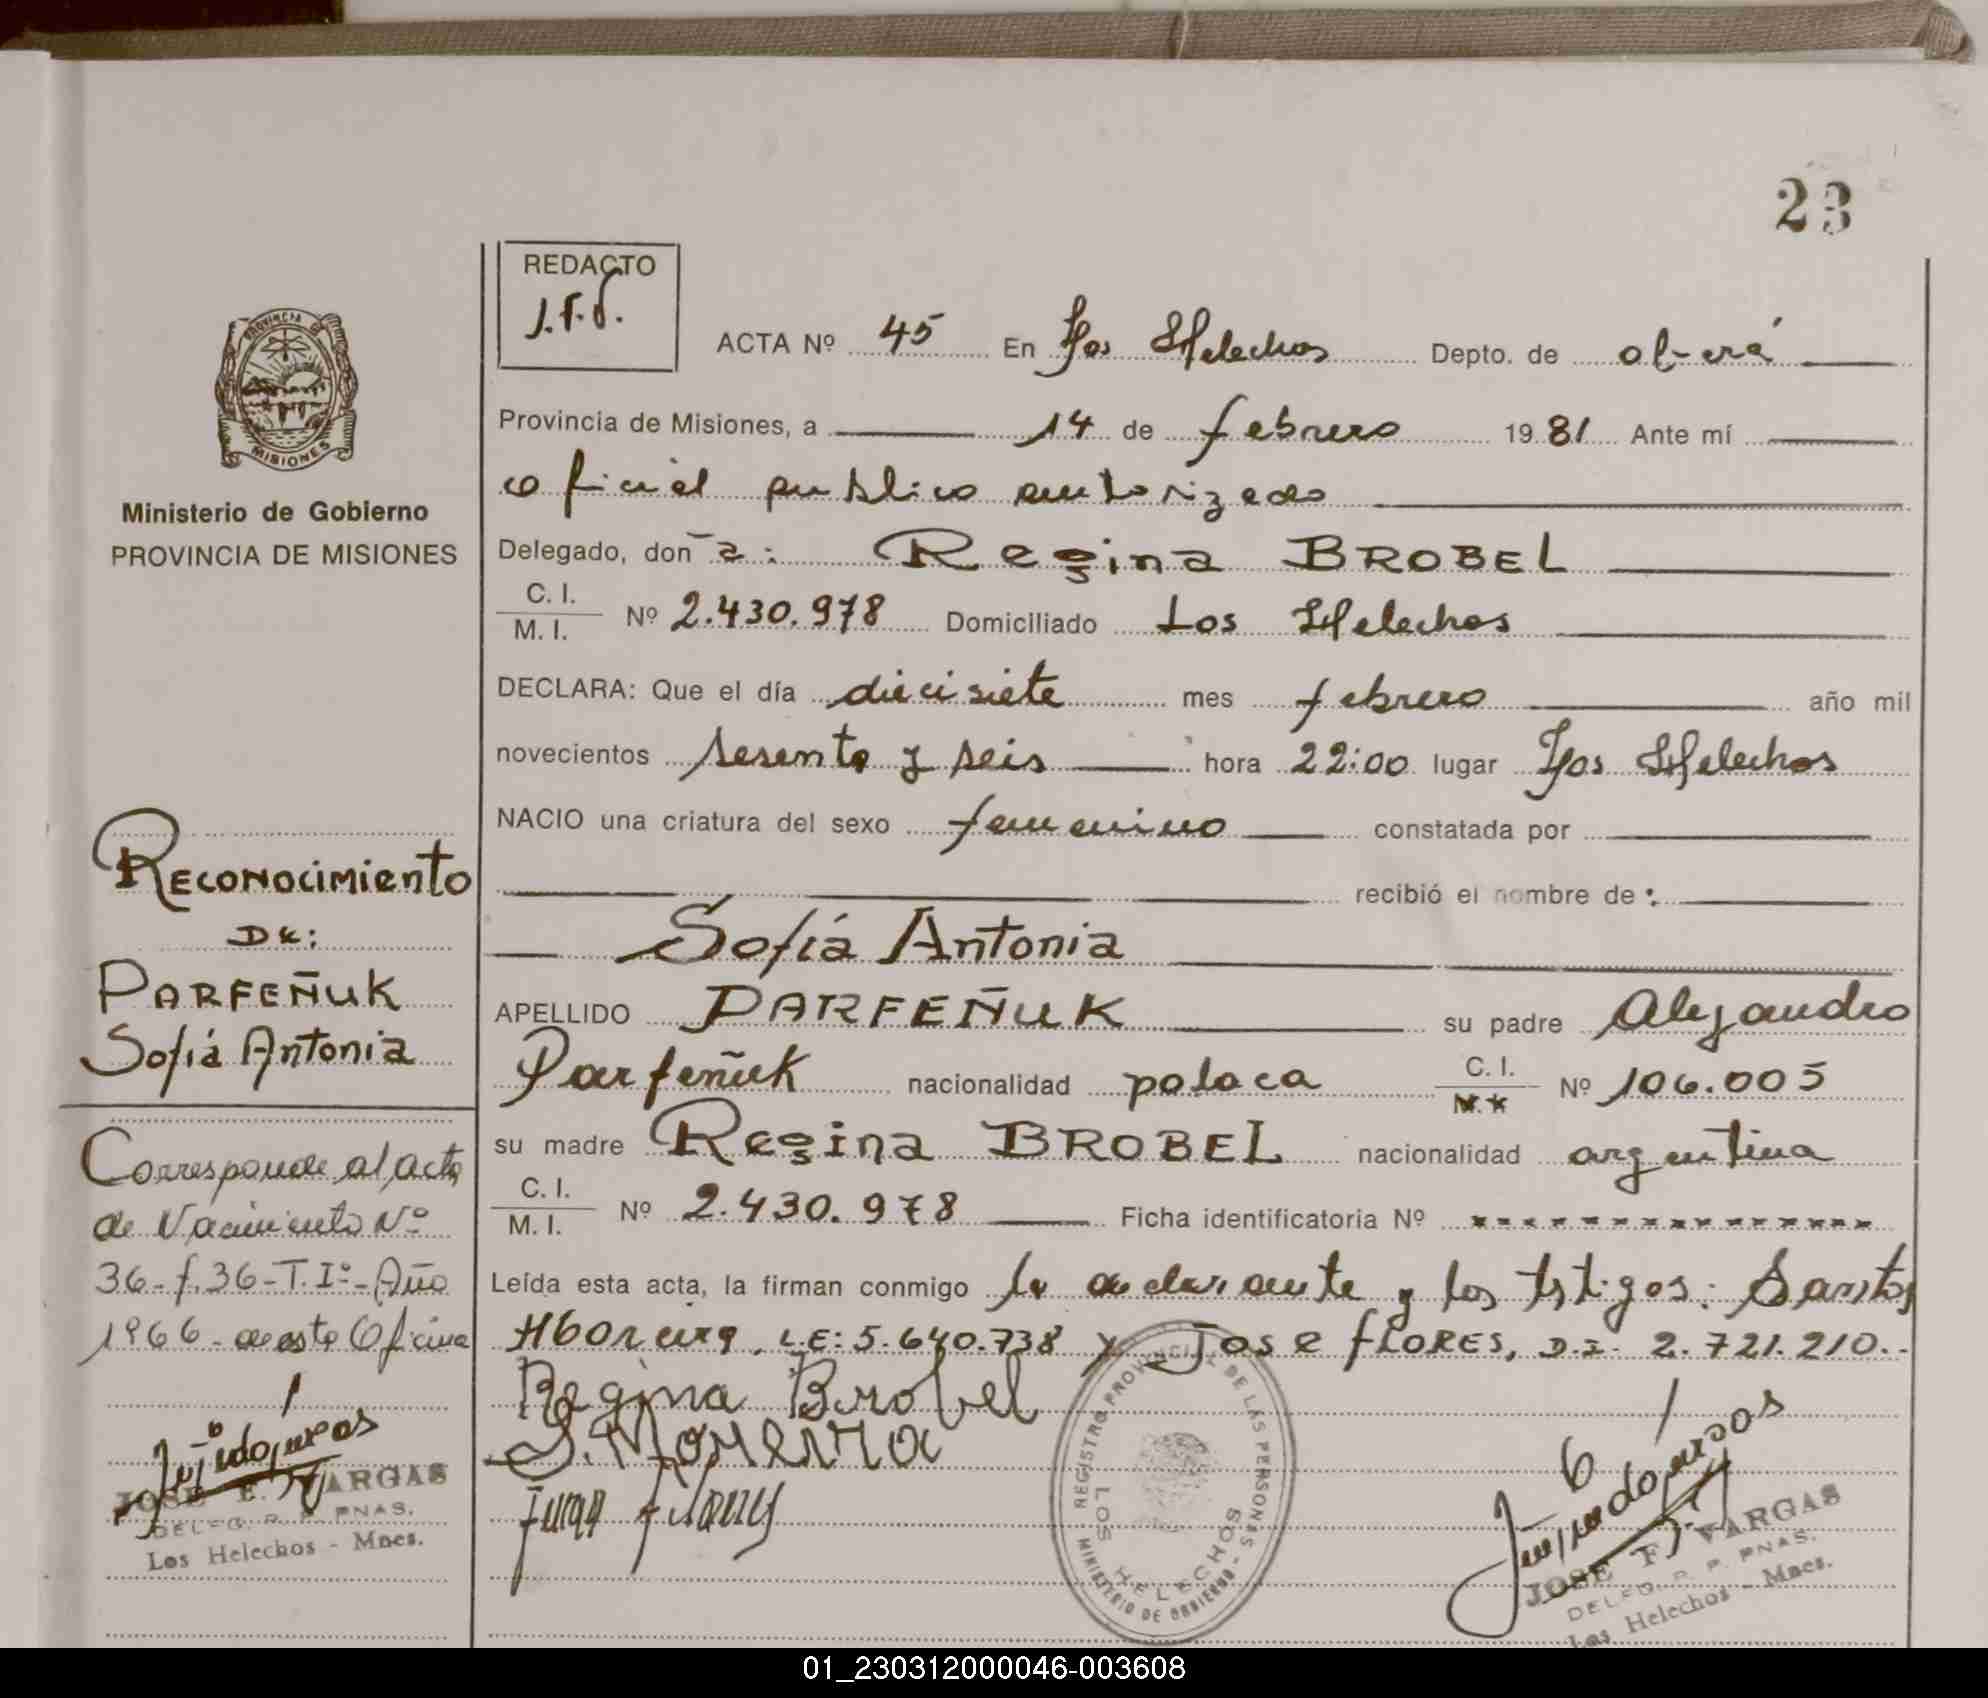 23
REDACTO
J.F.V.
ACTA Nº 45 En Los Helechos Depto. de oberá
Provincia de Misiones, a 14 de febrero 1981 Ante mí
oficial publico autorizado
Delegado, don~a: Regina BROBEL
C. I.
M. I. Nº 2.430.978 Domiciliado Los Helechos
DECLARA: Que el día diecisiete mes febrero año mil
novecientos sesenta y seis hora 22:00 lugar Los Helechos
NACIO una criatura del sexo femenino constatada por
recibió el nombre de :
Sofía Antonia
APELLIDO PARFEÑUK su padre Alejandro
Parfeñuk nacionalidad polaca C. I. Nº 106.005
su madre Regina BROBEL nacionalidad argentina
C. I.
M. I. Nº 2.430.978 Ficha identificatoria Nº
Leída esta acta, la firman conmigo la declarante y los testigos: Santos
Moreira, L.E: 5.640.738 y Jose FLORES, D.I. 2.721.210.-
Regina Brobel
S. Moreira
PROVINCIA DE MISIONES
Ministerio de Gobierno
PROVINCIA DE MISIONES
Reconocimiento
DE:
PARFEÑUK
Sofía Antonia
Corresponde al acta
de Nacimiento Nº
36-f.36-T.Iº-Año
1966-de esta Oficina
JOSE F. VARGAS
DELEG. R. P. PNAS.
Los Helechos - Mnes.
REGISTRO PROVINCIAL DE LAS PERSONAS
LOS HELECHOS
MINISTERIO DE GOBIERNO
JOSE F. VARGAS
DELEG. R. P. PNAS.
Los Helechos - Mnes.
01_230312000046-003608